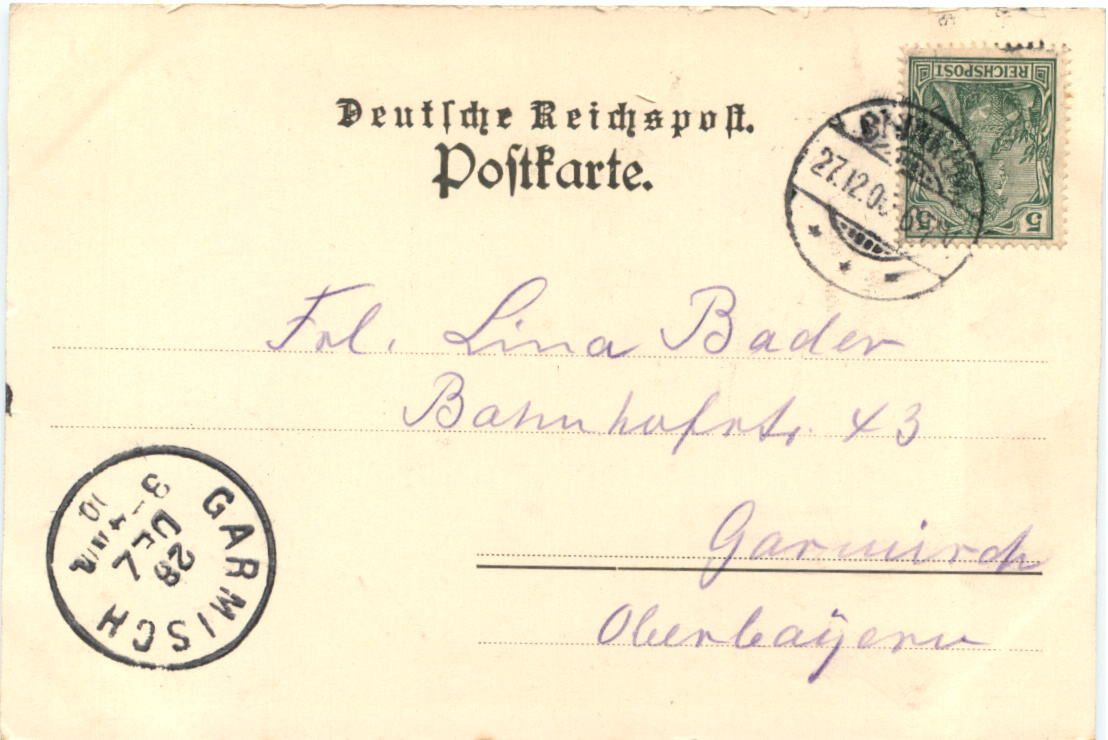 Deutsche Reichspost.
Postkarte.
REICHSPOST
5 5
27.12.0
Frl. Lina Bader
Bahnhofstr. 43
Garmisch
Oberbayern
GARMISCH
28
DEZ